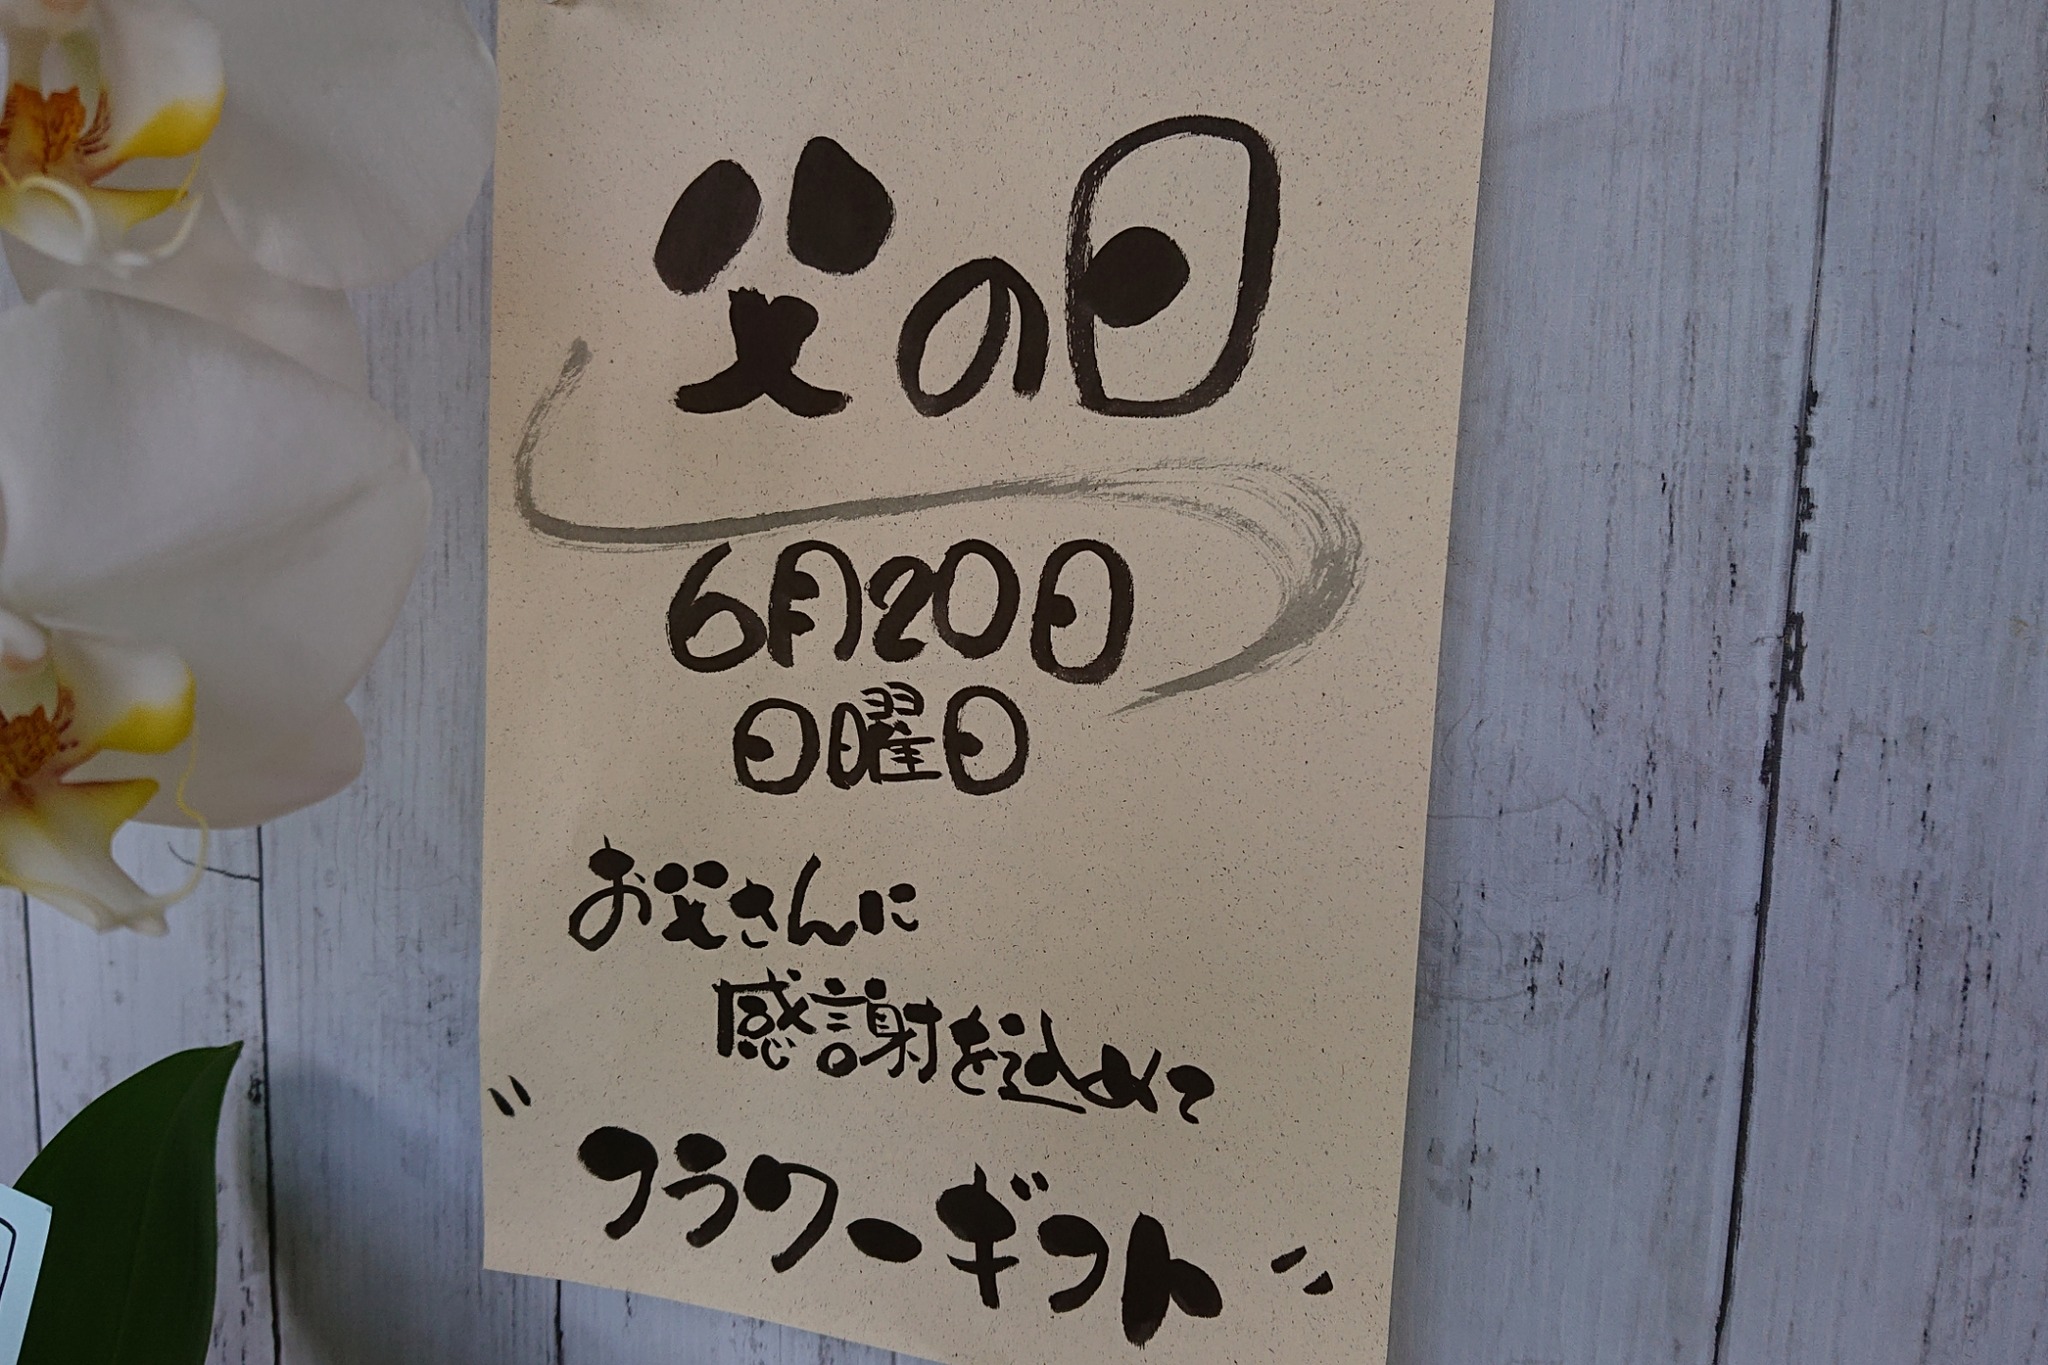 父の日
6月20日
日曜日
お父さんに
感謝を込めて
"フラワーギフト"